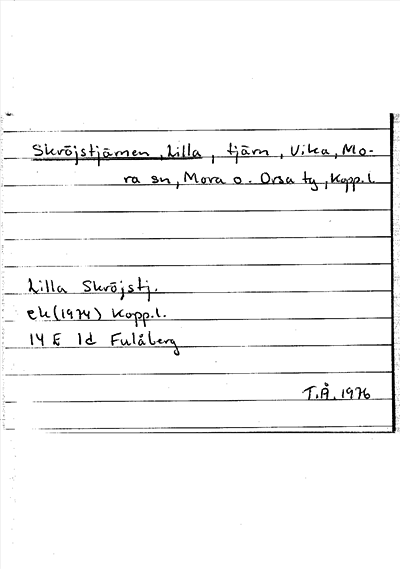 Skröjstjärnen, Lilla, tjärn, Vika, Mo-
ra sn, Mora o. Orsa tg, Kopp.l.
Lilla Skröjstj.
ek(1974) Kopp.l.
14 E 1d Fulåberg
T.Å. 1976